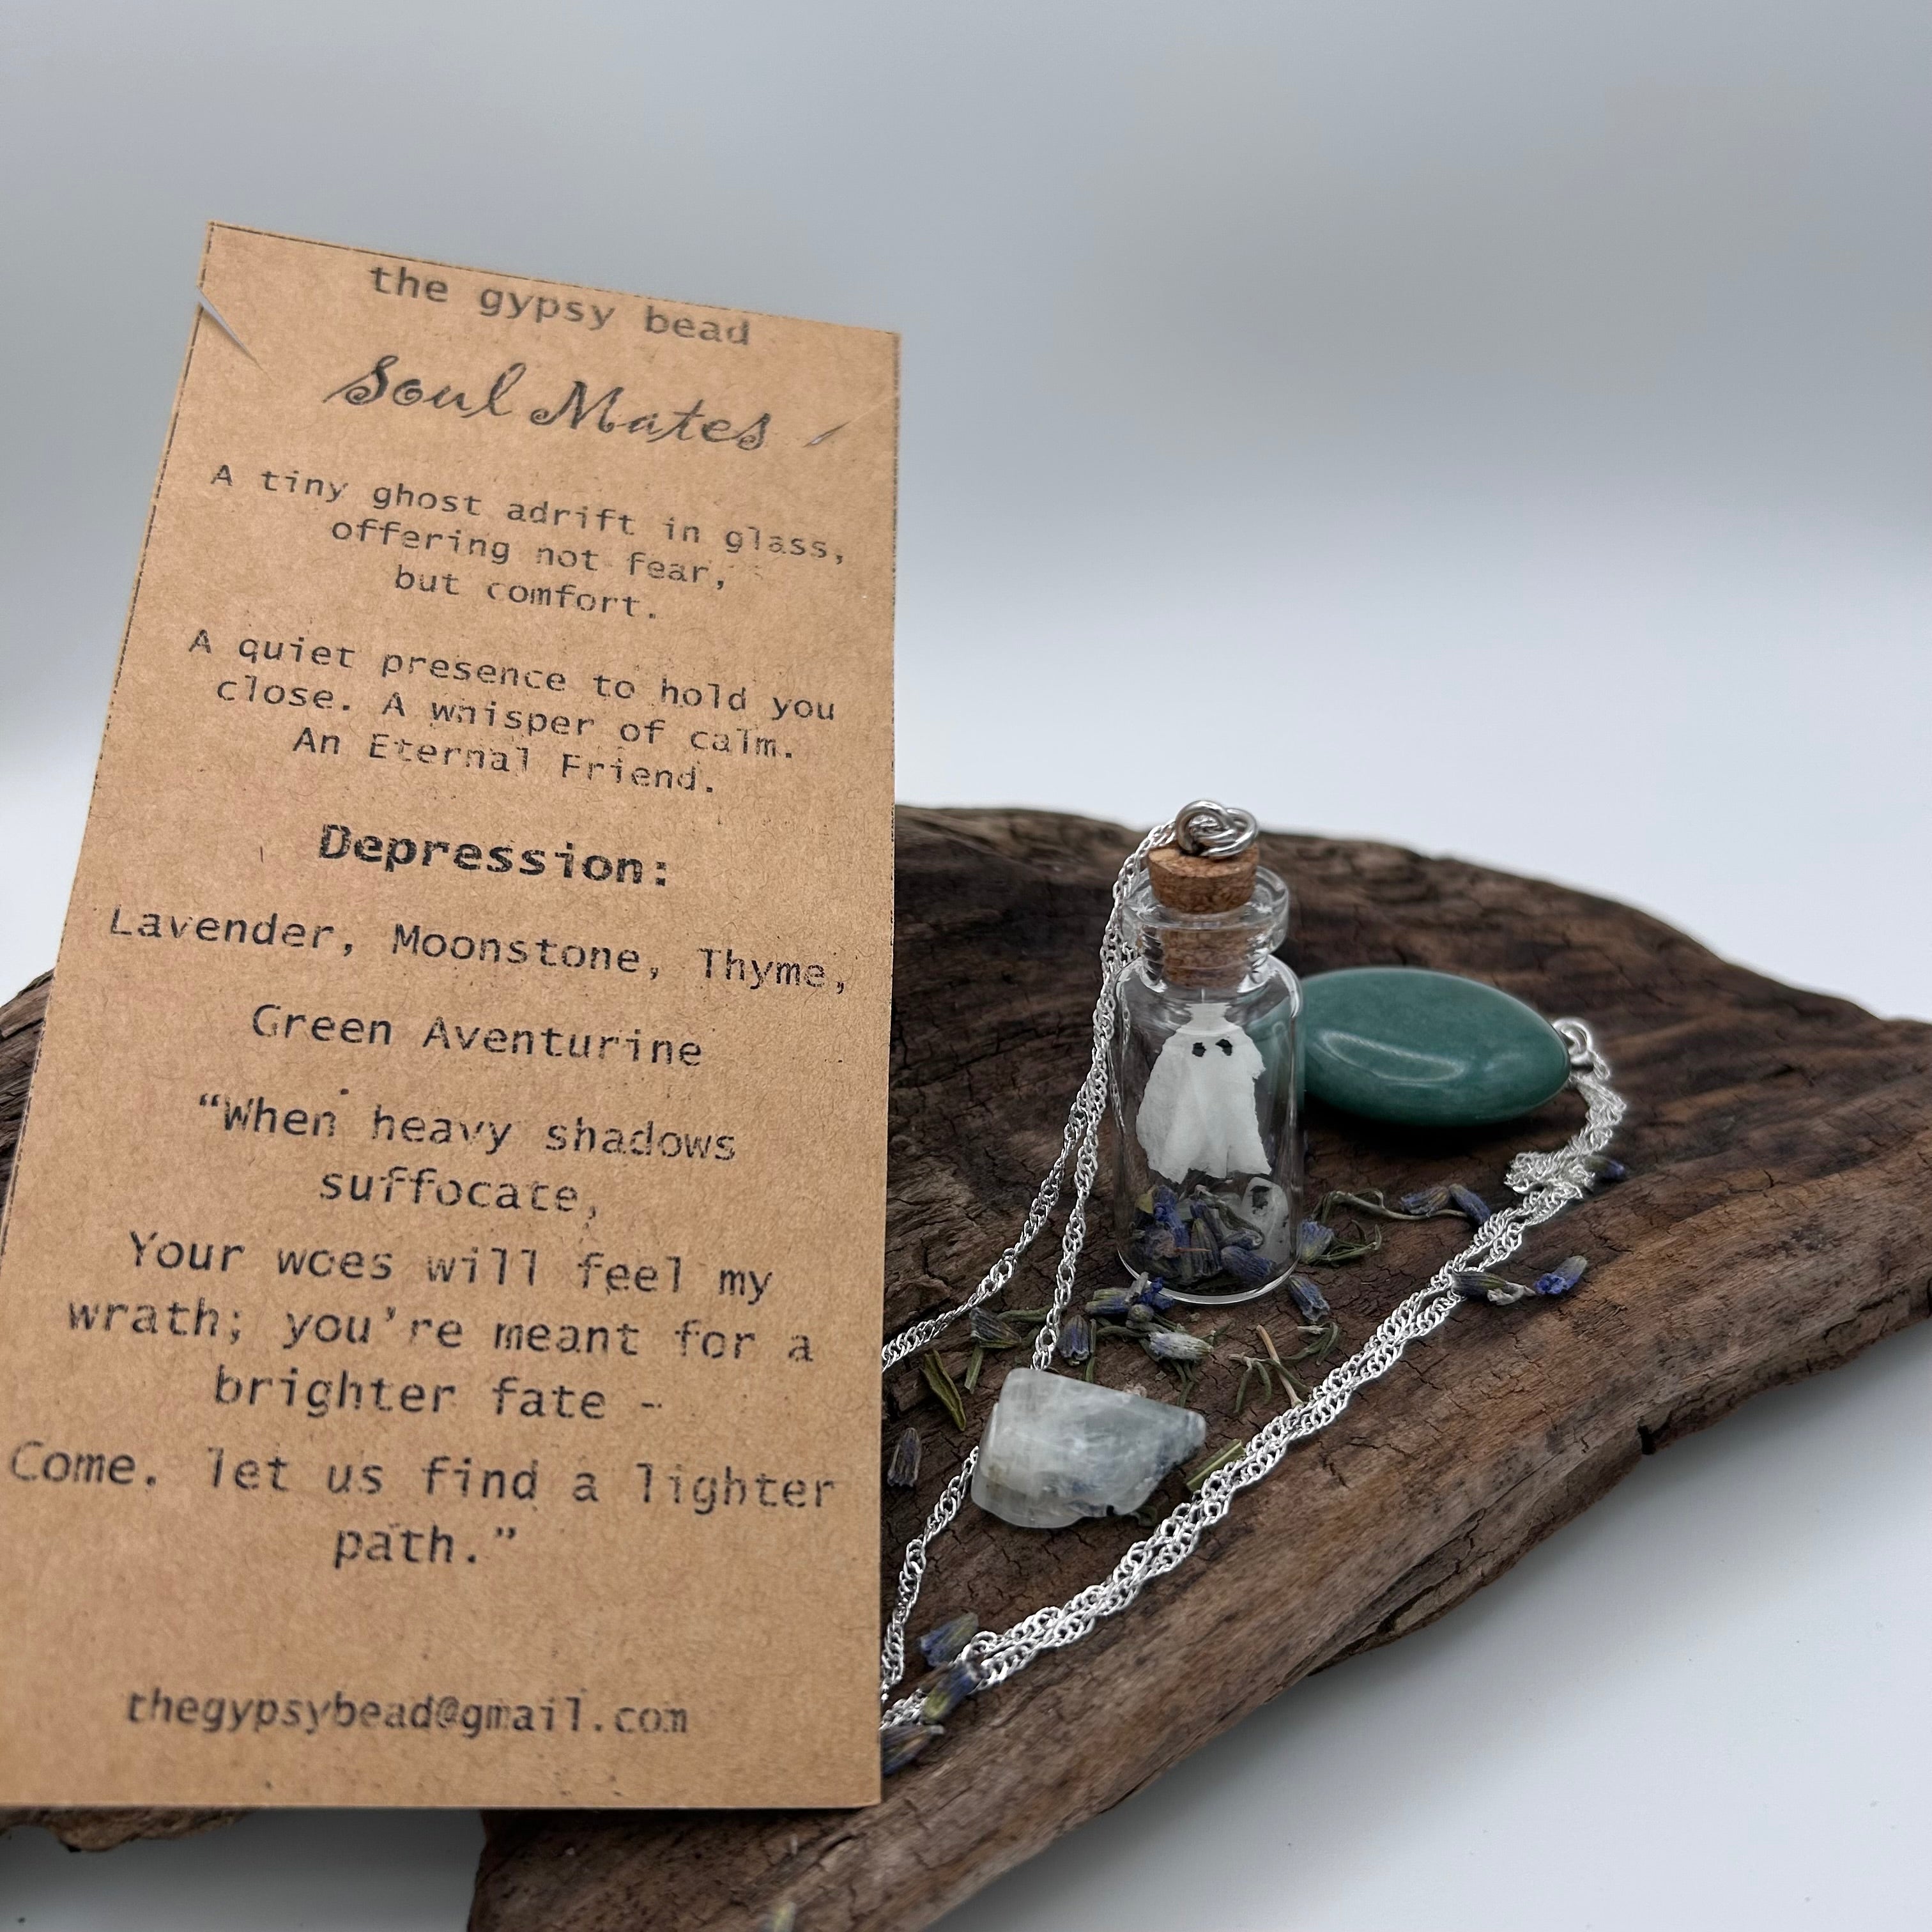 the gypsy bead
Soul Mates
A tiny ghost adrift in glass,
offering not fear,
but comfort.
A quiet presence to hold you
close. A whisper of calm.
An Eternal Friend.
Depression:
Lavender, Moonstone, Thyme,
Green Aventurine
“When heavy shadows
suffocate,
Your woes will feel my
wrath; you’re meant for a
brighter fate -
Come. let us find a lighter
path.”
thegypsybead@gmail.com